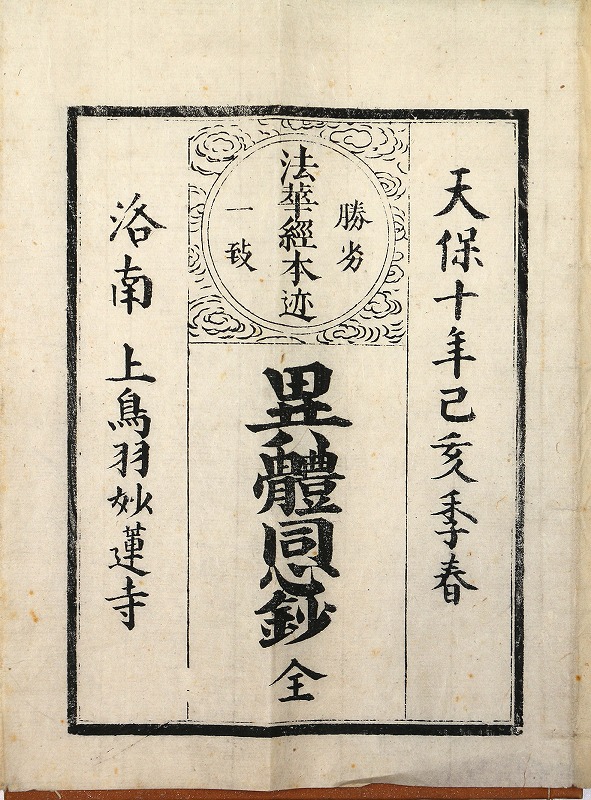 天保十年己亥季春
勝劣
法華經本迹
一致
異體同心鈔 全
洛南 上鳥羽妙蓮寺